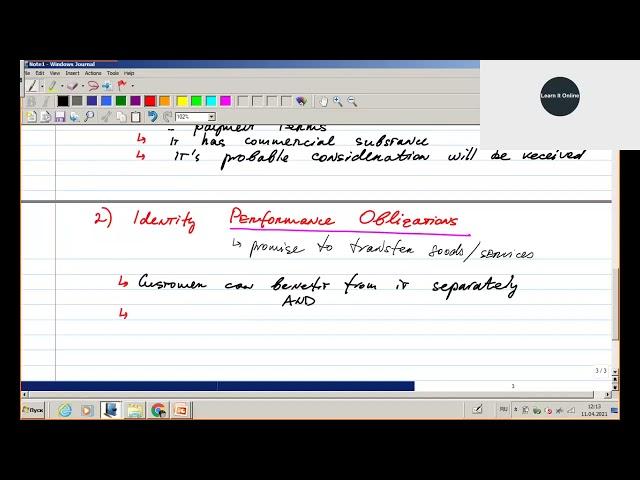 Note1 - Windows Journal
File Edit View Insert Actions Tools Help
102%
Learn It Online
payment terms
↳ it has commercial substance
↳ it's probable consideration will be received
2) Identity Performance Obligations
↳ promise to transfer goods/services
↳ Customer can benefit from it separately
AND
↳
3 / 3
3
Пуск
RU
12:13
11.04.2021